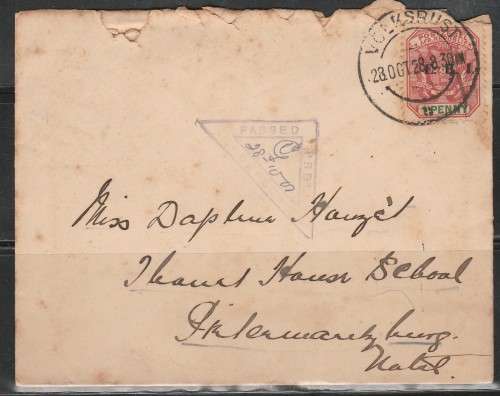 VOLKSRUST
28 OCT 28
1 PENNY
PASSED
Miss Daphne
Thanet House School
Pietermaritzburg.
Natal.